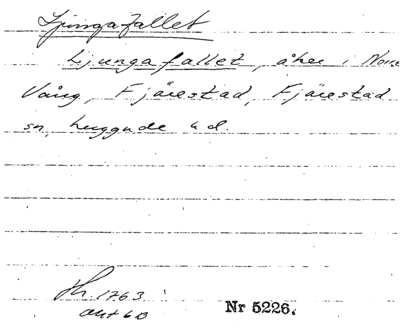 Ljungafallet
Ljungafallet, åker i Norre
Vång, Fjärestad, Fjärestad
sn, Luggude hd.
1763
akt 60
Nr 5226.